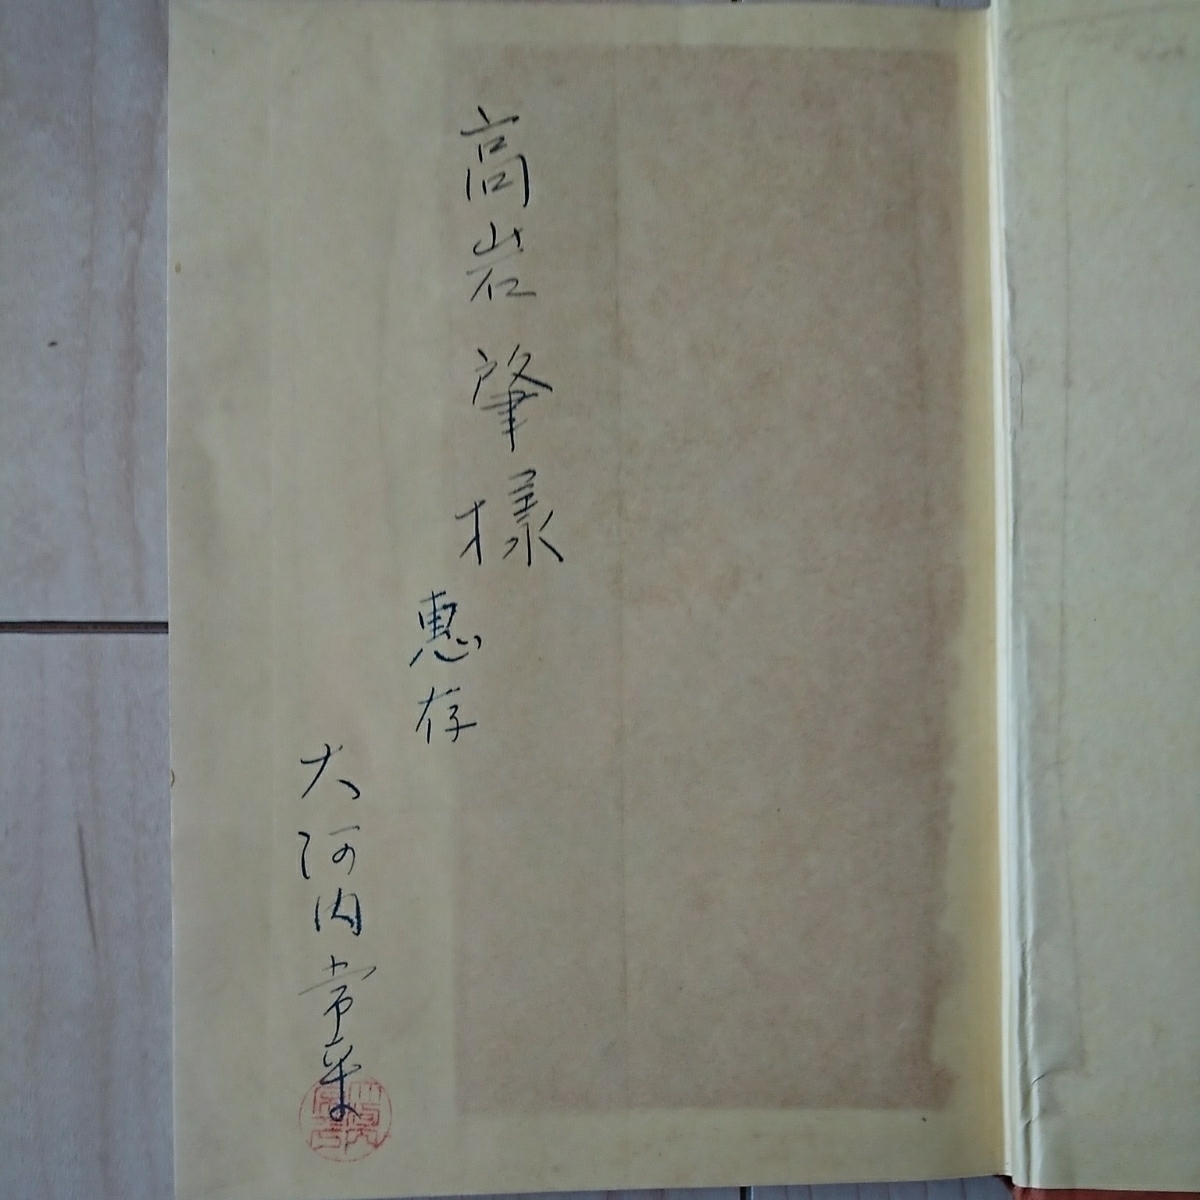 高岩肇様
恵存
大河内常平